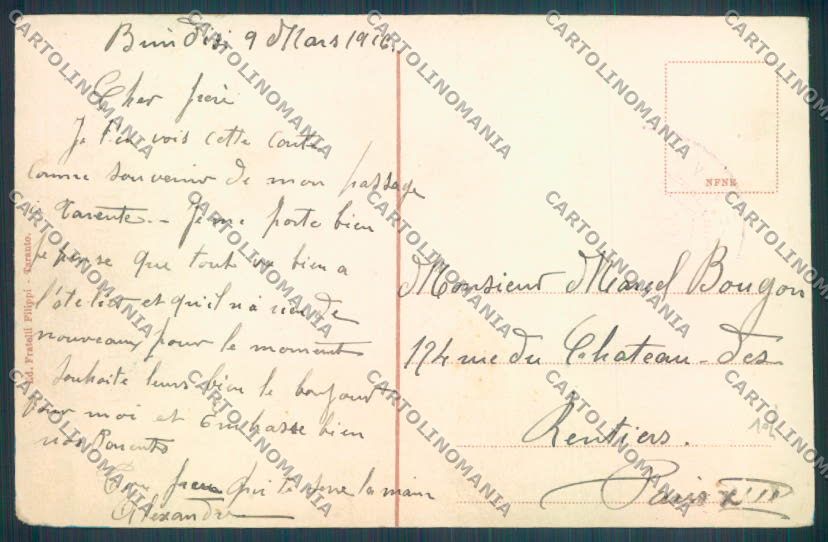 Brindisi 9 Mars 1916.
Cher frère
Je t'envois cette carte
comme souvenir de mon passage
à Tarente. - Je me porte bien
je pense que toute va bien a
l'atelier et qu'il n'a rien de
nouveaux pour le moment
Souhaite leurs bien le bonjour
pour moi et Embrasse bien
nos Parents
Ton frere qui te serre la main
Alexandre
Ed. Fratelli Filippi - Taranto.
NFNK
Monsieur Marcel Bougon
174 rue du Chateau-des
Rentiers.
Paris XIII
CARTOLINOMANIA